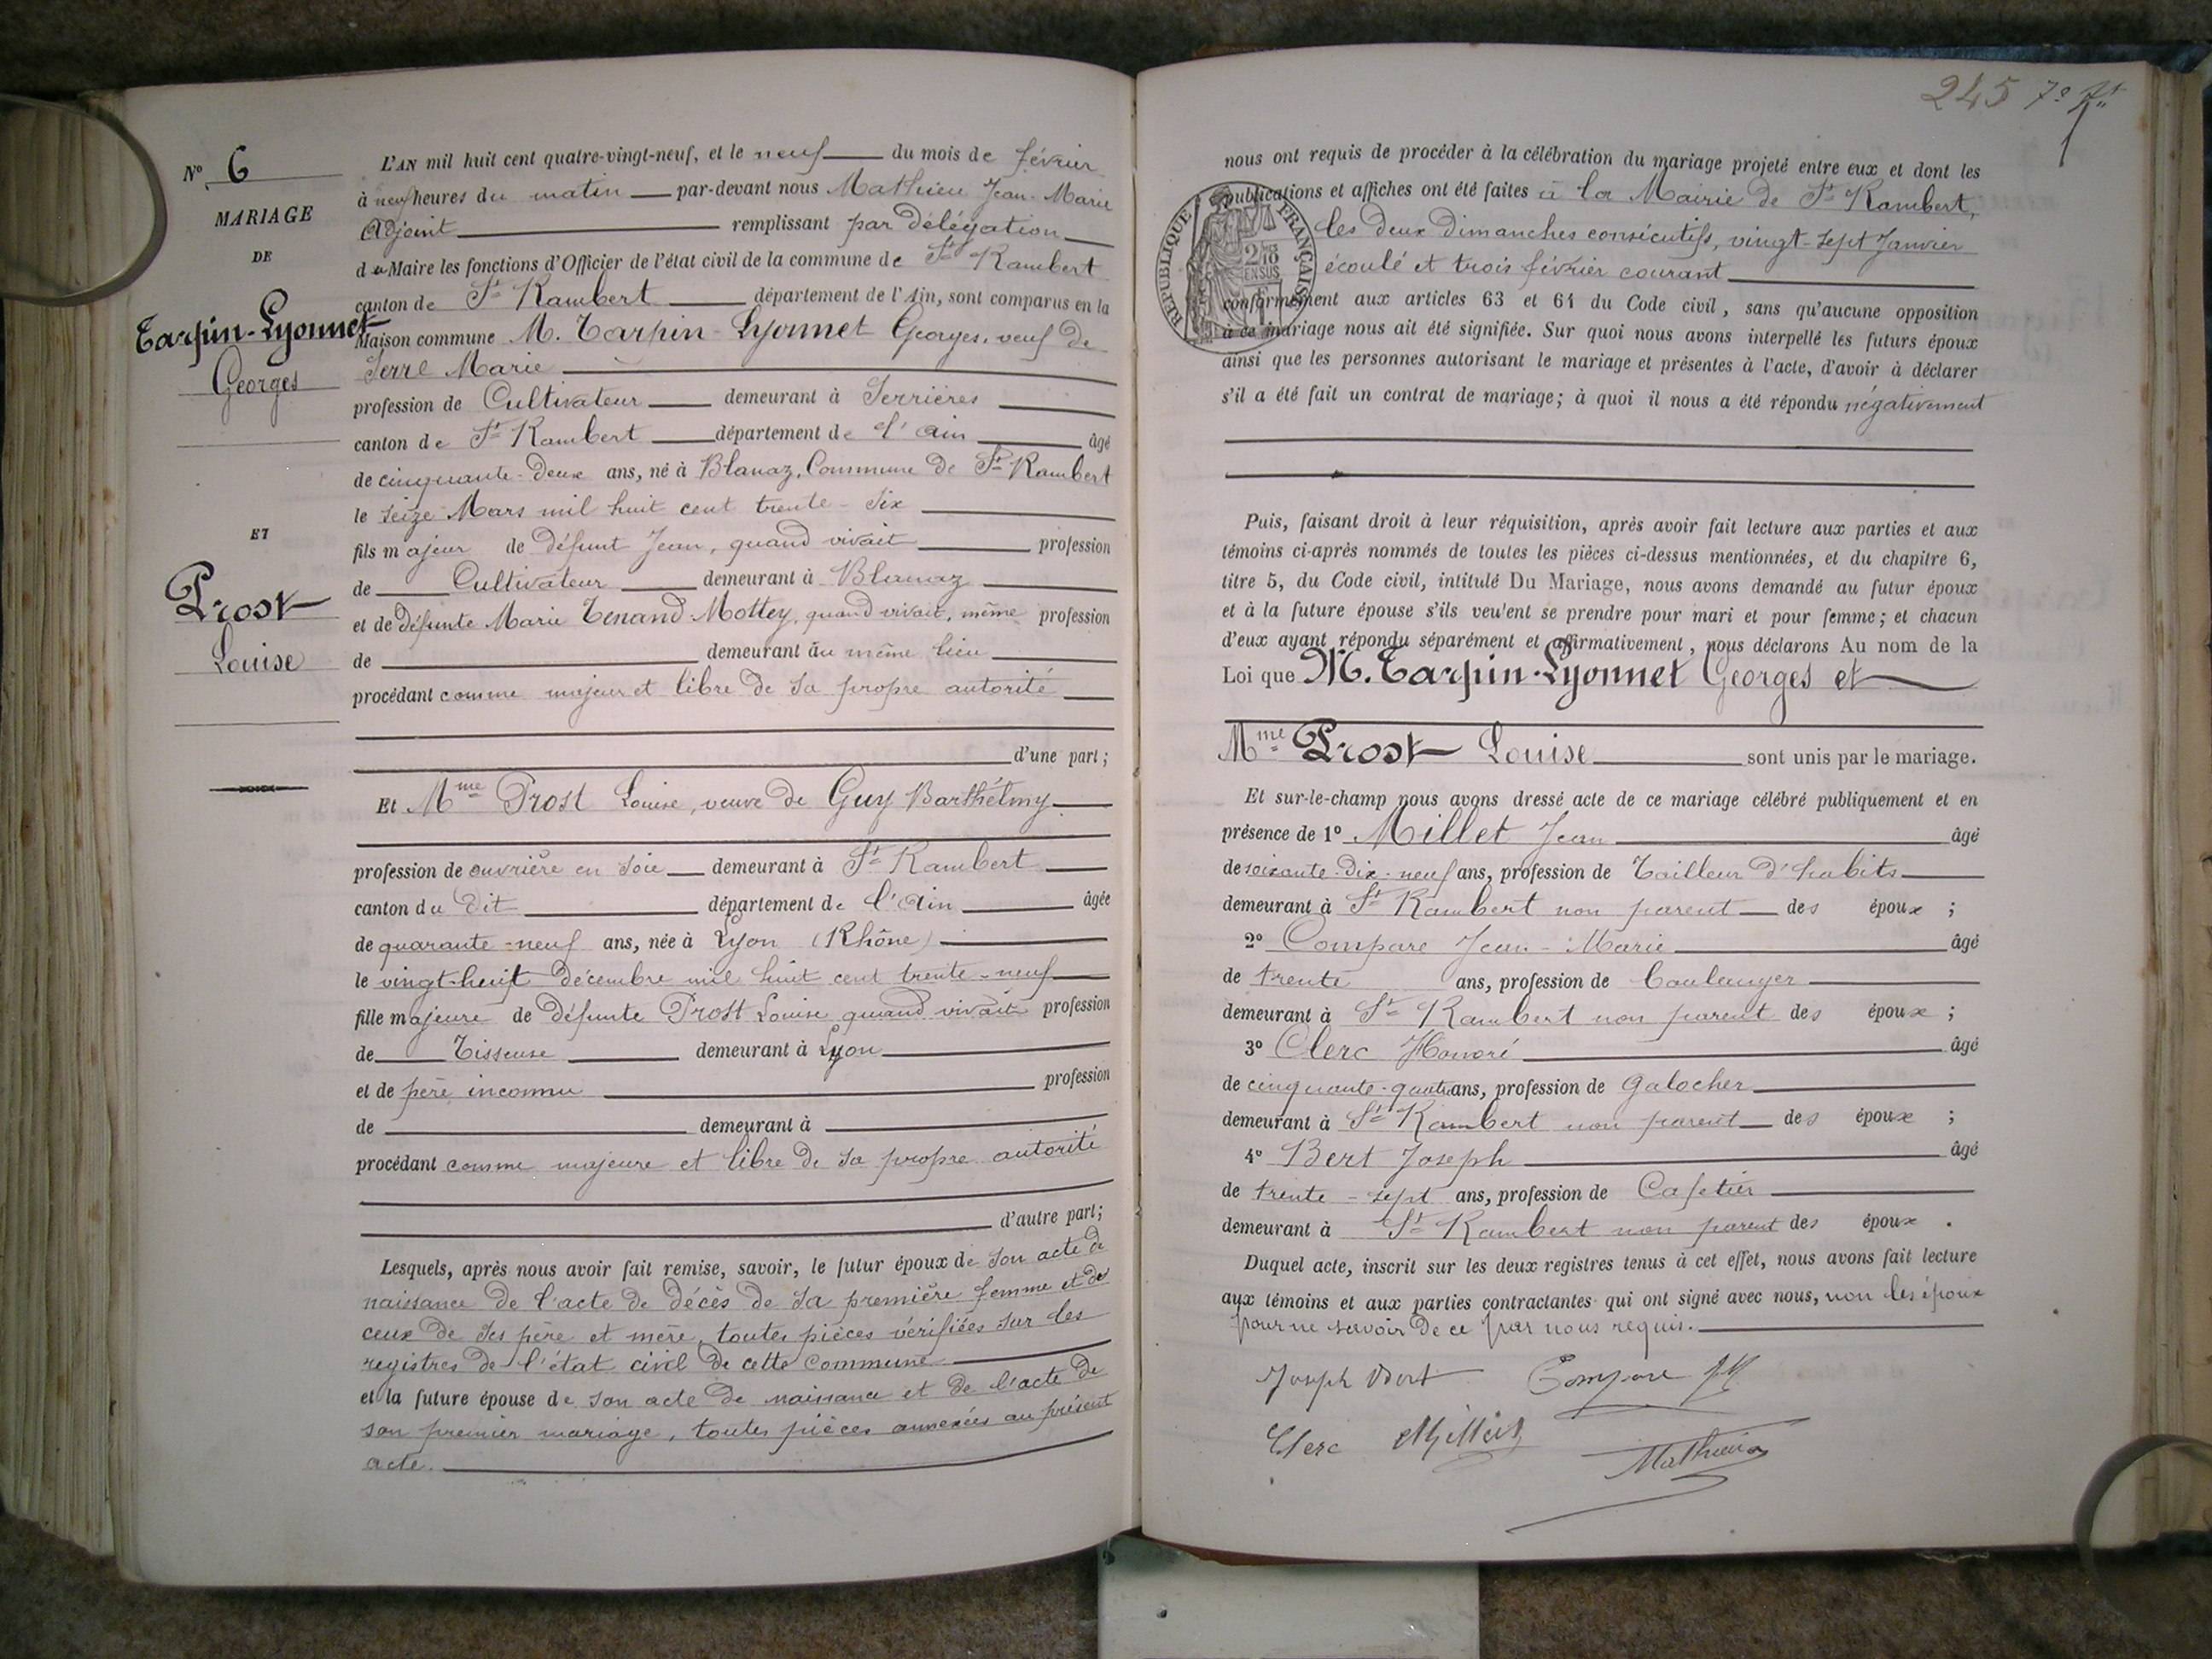 Nº 6
MARIAGE
DE
Tarpin-Lyonnet
Georges
ET
Prost
Louise
L'AN mil huit cent quatre-vingt-neuf, et le neuf du mois de février
à neuf heures du matin par-devant nous Mathieu Jean-Marie
Adjoint remplissant par Délégation
du Maire les fonctions d'Officier de l'état civil de la commune de St Rambert
canton de St Rambert département de l'Ain, sont comparus en la
Maison commune M. Tarpin-Lyonnet Georges, veuf de
Serre Marie
profession de Cultivateur demeurant à Serrières
canton de St Rambert département de l'Ain âgé
de cinquante-deux ans, né à Blanaz, Commune de St Rambert
le seize Mars mil huit cent trente-six
fils majeur de défunt Jean, quand vivait profession
de Cultivateur demeurant à Blanaz
et de défunte Marie Tenand Mottey, quand vivait, même profession
de demeurant au même lieu
procédant comme majeur et libre de sa propre autorité
d'une part;
Et Mme Prost Louise, veuve de Guy Barthélmy
profession de ouvrière en soie demeurant à St Rambert
canton du dit département de l'Ain âgée
de quarante-neuf ans, née à Lyon (Rhône)
le vingt-huit décembre mil huit cent trente-neuf
fille majeure de défunte Prost Louise quand vivait profession
de Tisseuse demeurant à Lyon
et de père inconnu profession
de demeurant à
procédant comme majeure et libre de sa propre autorité
d'autre part;
Lesquels, après nous avoir fait remise, savoir, le futur époux de son acte de
naissance de l'acte de décès de sa première femme et de
ceux de ses père et mère, toutes pièces vérifiées sur les
registres de l'état civil de cette Commune
et la future épouse de son acte de naissance et de l'acte de
son premier mariage, toutes pièces annexées au présent
acte.
245 7e
nous ont requis de procéder à la célébration du mariage projeté entre eux et dont les
publications et affiches ont été faites à la Mairie de St Rambert,
les deux Dimanches consécutifs, vingt-sept Janvier
écoulé et trois février courant
conformément aux articles 63 et 64 du Code civil, sans qu'aucune opposition
à ce mariage nous ait été signifiée. Sur quoi nous avons interpellé les futurs époux
ainsi que les personnes autorisant le mariage et présentes à l'acte, d'avoir à déclarer
s'il a été fait un contrat de mariage; à quoi il nous a été répondu négativement
RÉPUBLIQUE FRANÇAISE
Puis, faisant droit à leur réquisition, après avoir fait lecture aux parties et aux
témoins ci-après nommés de toutes les pièces ci-dessus mentionnées, et du chapitre 6,
titre 5, du Code civil, intitulé Du Mariage, nous avons demandé au futur époux
et à la future épouse s'ils veulent se prendre pour mari et pour femme; et chacun
d'eux ayant répondu séparément et affirmativement, nous déclarons Au nom de la
Loi que M. Tarpin-Lyonnet Georges et
Mme Prost Louise sont unis par le mariage.
Et sur-le-champ nous avons dressé acte de ce mariage célébré publiquement et en
présence de 1º Millet Jean âgé
de soixante-dix-neuf ans, profession de Tailleur d'habits
demeurant à St Rambert non parent des époux ;
2º Compare Jean-Marie âgé
de trente ans, profession de boulanger
demeurant à St Rambert non parent des époux ;
3º Clerc Honoré âgé
de cinquante-quatre ans, profession de Galocher
demeurant à St Rambert non parent des époux ;
4º Bert Joseph âgé
de trente-sept ans, profession de Cafetier
demeurant à St Rambert non parent des époux .
Duquel acte, inscrit sur les deux registres tenus à cet effet, nous avons fait lecture
aux témoins et aux parties contractantes qui ont signé avec nous, non les époux
pour ne savoir de ce par nous requis.
Joseph Bert Compare JM
Clerc Millet
Mathieu